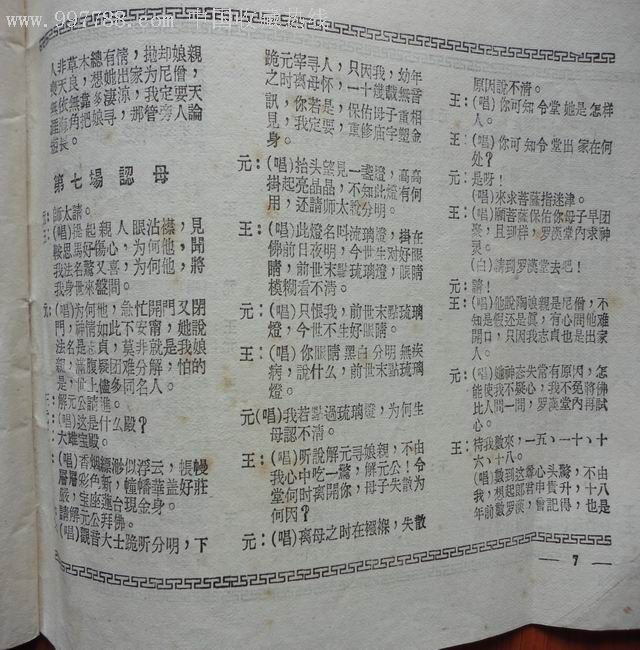 www.997788.com 中国收藏热线
人非草木總有情，拋却娘親
喪天良，想她出家为尼僧，
無依無靠多淒涼，我定要天
涯海角把娘尋，那管旁人論
短長。
第七場認母
王：師太請。
(唱)提起親人眼沾襟，見
鞍思馬好傷心，为何他，聞
我法名驚又喜，为何他，將
我身世來盤問。
元：(唱)为何他，急忙開門又閉
門，神情如此不安甯，她說
法名是志貞，莫非就是我娘
親，滿腹疑团难分解，怕的
是，世上儘多同名人。
王：解元公請進。
元：(唱)这是什么殿？
王：大雄宝殿。
元：(唱)香烟縹渺似浮云，帳幔
層層彩色新，幢幡華盖好莊
嚴，宝座蓮台現金身。
王：請解元公拜佛。
元：(唱)觀音大士跪听分明，下
跪元宰寻人，只因我，幼年
之时离母怀，一十幾載無音
訊，你若是，保佑母子重相
見，我定要，重修庙宇塑金
身。
元：(唱)抬头望見一盞燈，高高
掛起亮晶晶，不知此燈有何
用，还請师太說分明。
王：(唱)此燈名叫琉璃燈，掛在
佛前日夜明，今世生对好眼
睛，前世末點琉璃燈，眼睛
模糊看不清。
元：(唱)只恨我，前世末點琉璃
燈，今世不生好眼睛。
王：(唱)你眼睛黑白分明無疾
病，說什么，前世末點琉璃
燈。
元(唱)我若點过琉璃燈，为何生
母認不清。
王：(唱)听說解元寻娘親，不由
我心中吃一驚，解元公！令
堂何时离開你，母子失散为
何因？
元：(唱)离母之时在襁褓，失散
原因說不清。
王：(唱)你可知令堂她是怎样
人。
王：(唱)你可知令堂出家在何
处？
元：是呀！
(唱)來求菩薩指迷津。
王：(唱)願菩薩保佑你母子早团
聚，且到样，罗漢堂內求神
灵。
(白)請到罗漢堂去吧！
元：請！
王：(唱)他說陶娘親是尼僧，不
知是假还是眞，有心問他难
開口，只因我志貞也是出家
人。
元：(唱)她神志失常有原因，怎
能使我不疑心，我不免將佛
比人問一問，罗漢堂內再試
心。
王：待我數來，一五、一十、十
六、十八。
(唱)數到这尊心头驚，不由
我，想起郎君申貴升，十八
年前數罗漢，曾記得，也是
— 7 —